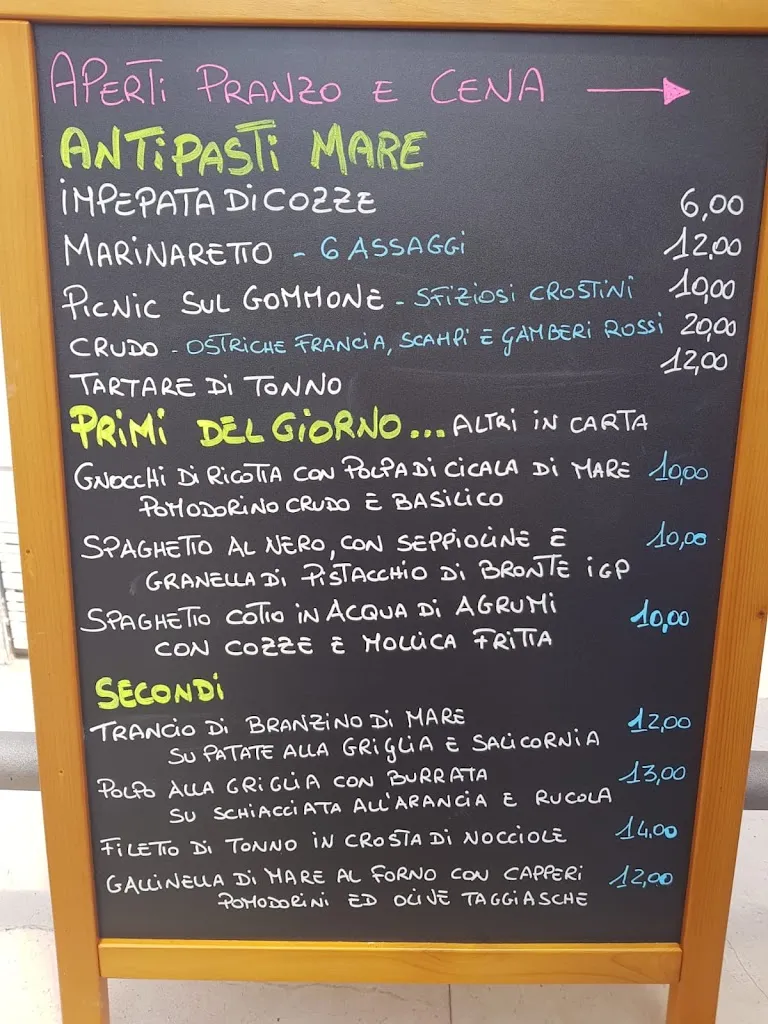 APERTI PRANZO E CENA →
ANTIPASTI MARE
IMPEPATA DI COZZE 6,00
MARINARETTO - 6 ASSAGGI 12,00
PICNIC SUL GOMMONE - SFIZIOSI CROSTINI 10,00
CRUDO - OSTRICHE FRANCIA, SCAMPI E GAMBERI ROSSI 20,00
TARTARE DI TONNO 12,00
PRIMI DEL GIORNO... ALTRI IN CARTA
GNOCCHI DI RICOTTA CON POLPA DI CICALA DI MARE 10,00
POMODORINO CRUDO E BASILICO
SPAGHETTO AL NERO, CON SEPPIOLINE E 10,00
GRANELLA DI PISTACCHIO DI BRONTE IGP
SPAGHETTO COTTO IN ACQUA DI AGRUMI 10,00
CON COZZE E MOLLICA FRITTA
SECONDI
TRANCIO DI BRANZINO DI MARE 12,00
SU PATATE ALLA GRIGLIA E SALICORNIA
POLPO ALLA GRIGLIA CON BURRATA 13,00
SU SCHIACCIATA ALL'ARANCIA E RUCOLA
FILETTO DI TONNO IN CROSTA DI NOCCIOLE 14,00
GALLINELLA DI MARE AL FORNO CON CAPPERI 12,00
POMODORINI ED OLIVE TAGGIASCHE